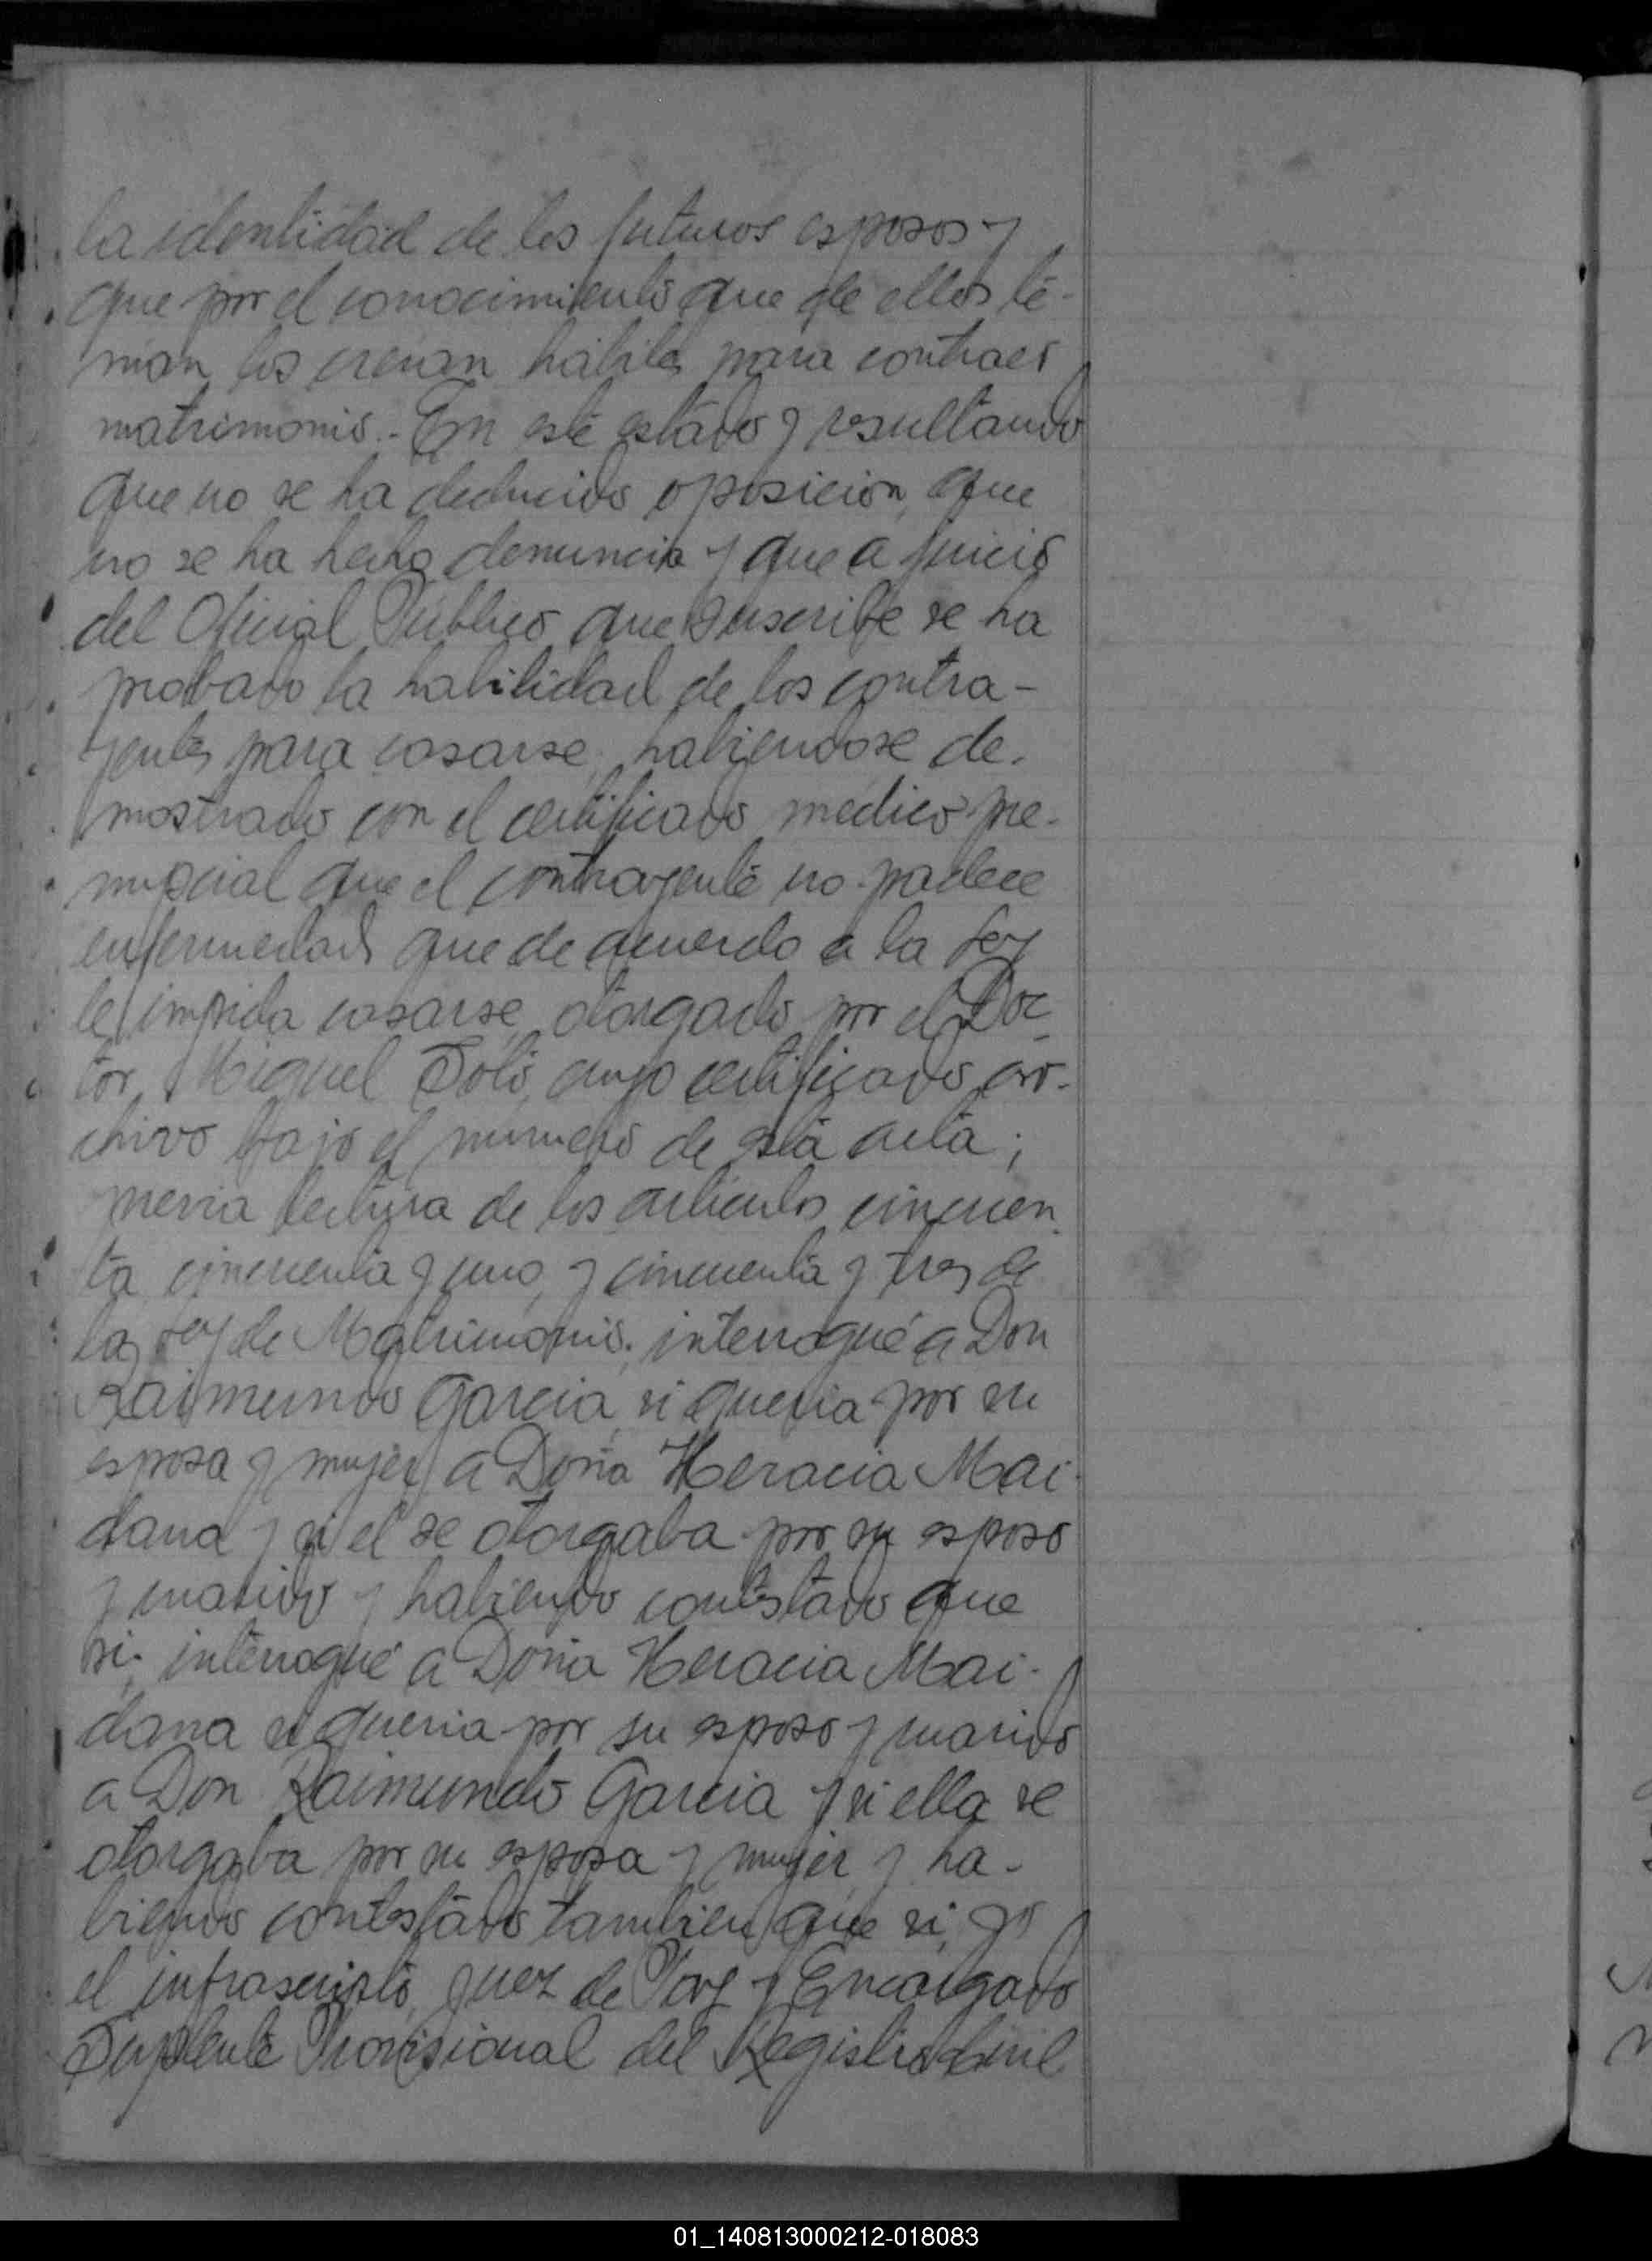 la identidad de los futuros esposos y
que por el conocimiento que de ellos te-
nian los creian hábiles para contraer
matrimonio.- En este estado y resultando
que no se ha deducido oposicion, que
no se ha hecho denuncia y que a juicio
del Oficial Público que suscribe se ha
probado la habilidad de los contra-
yentes para casarse, habiendose de-
mostrado con el certificado médico pre-
nupcial que el contrayente no padece
enfermedad que de acuerdo a la Ley
le impida casarse, otorgado por el Doc-
tor Miguel Solis, cuyo certificado ar-
chivo bajo el número de esta acta;
previa lectura de los articulos cincuen-
ta, cincuenta y uno, y cincuenta y tres de
la Ley de Matrimonio, interrogué a Don
Raimundo Garcia, si queria por su
esposa y mujer a Doña Heracia Mai-
dana y si el se otorgaba por su esposo
y marido y habiendo contestado que
si, interrogué a Doña Heracia Mai-
dana si queria por su esposo y marido
a Don Raimundo Garcia y si ella se
otorgaba por su esposa y mujer y ha-
biendo contestado tambien que si, yo
el infrascripto, Juez de Paz y Encargado
Suplente Provisional del Registro Civil
01_140813000212-018083